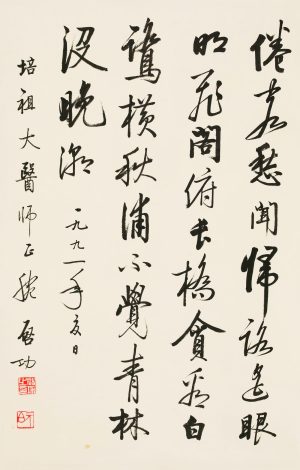 倦客愁聞歸路遙眼
明飛閣俯長橋貪看白
鷺橫秋浦不覺青林
沒晚潮 一九九一年夏日
培祖大醫師正腕 啟功